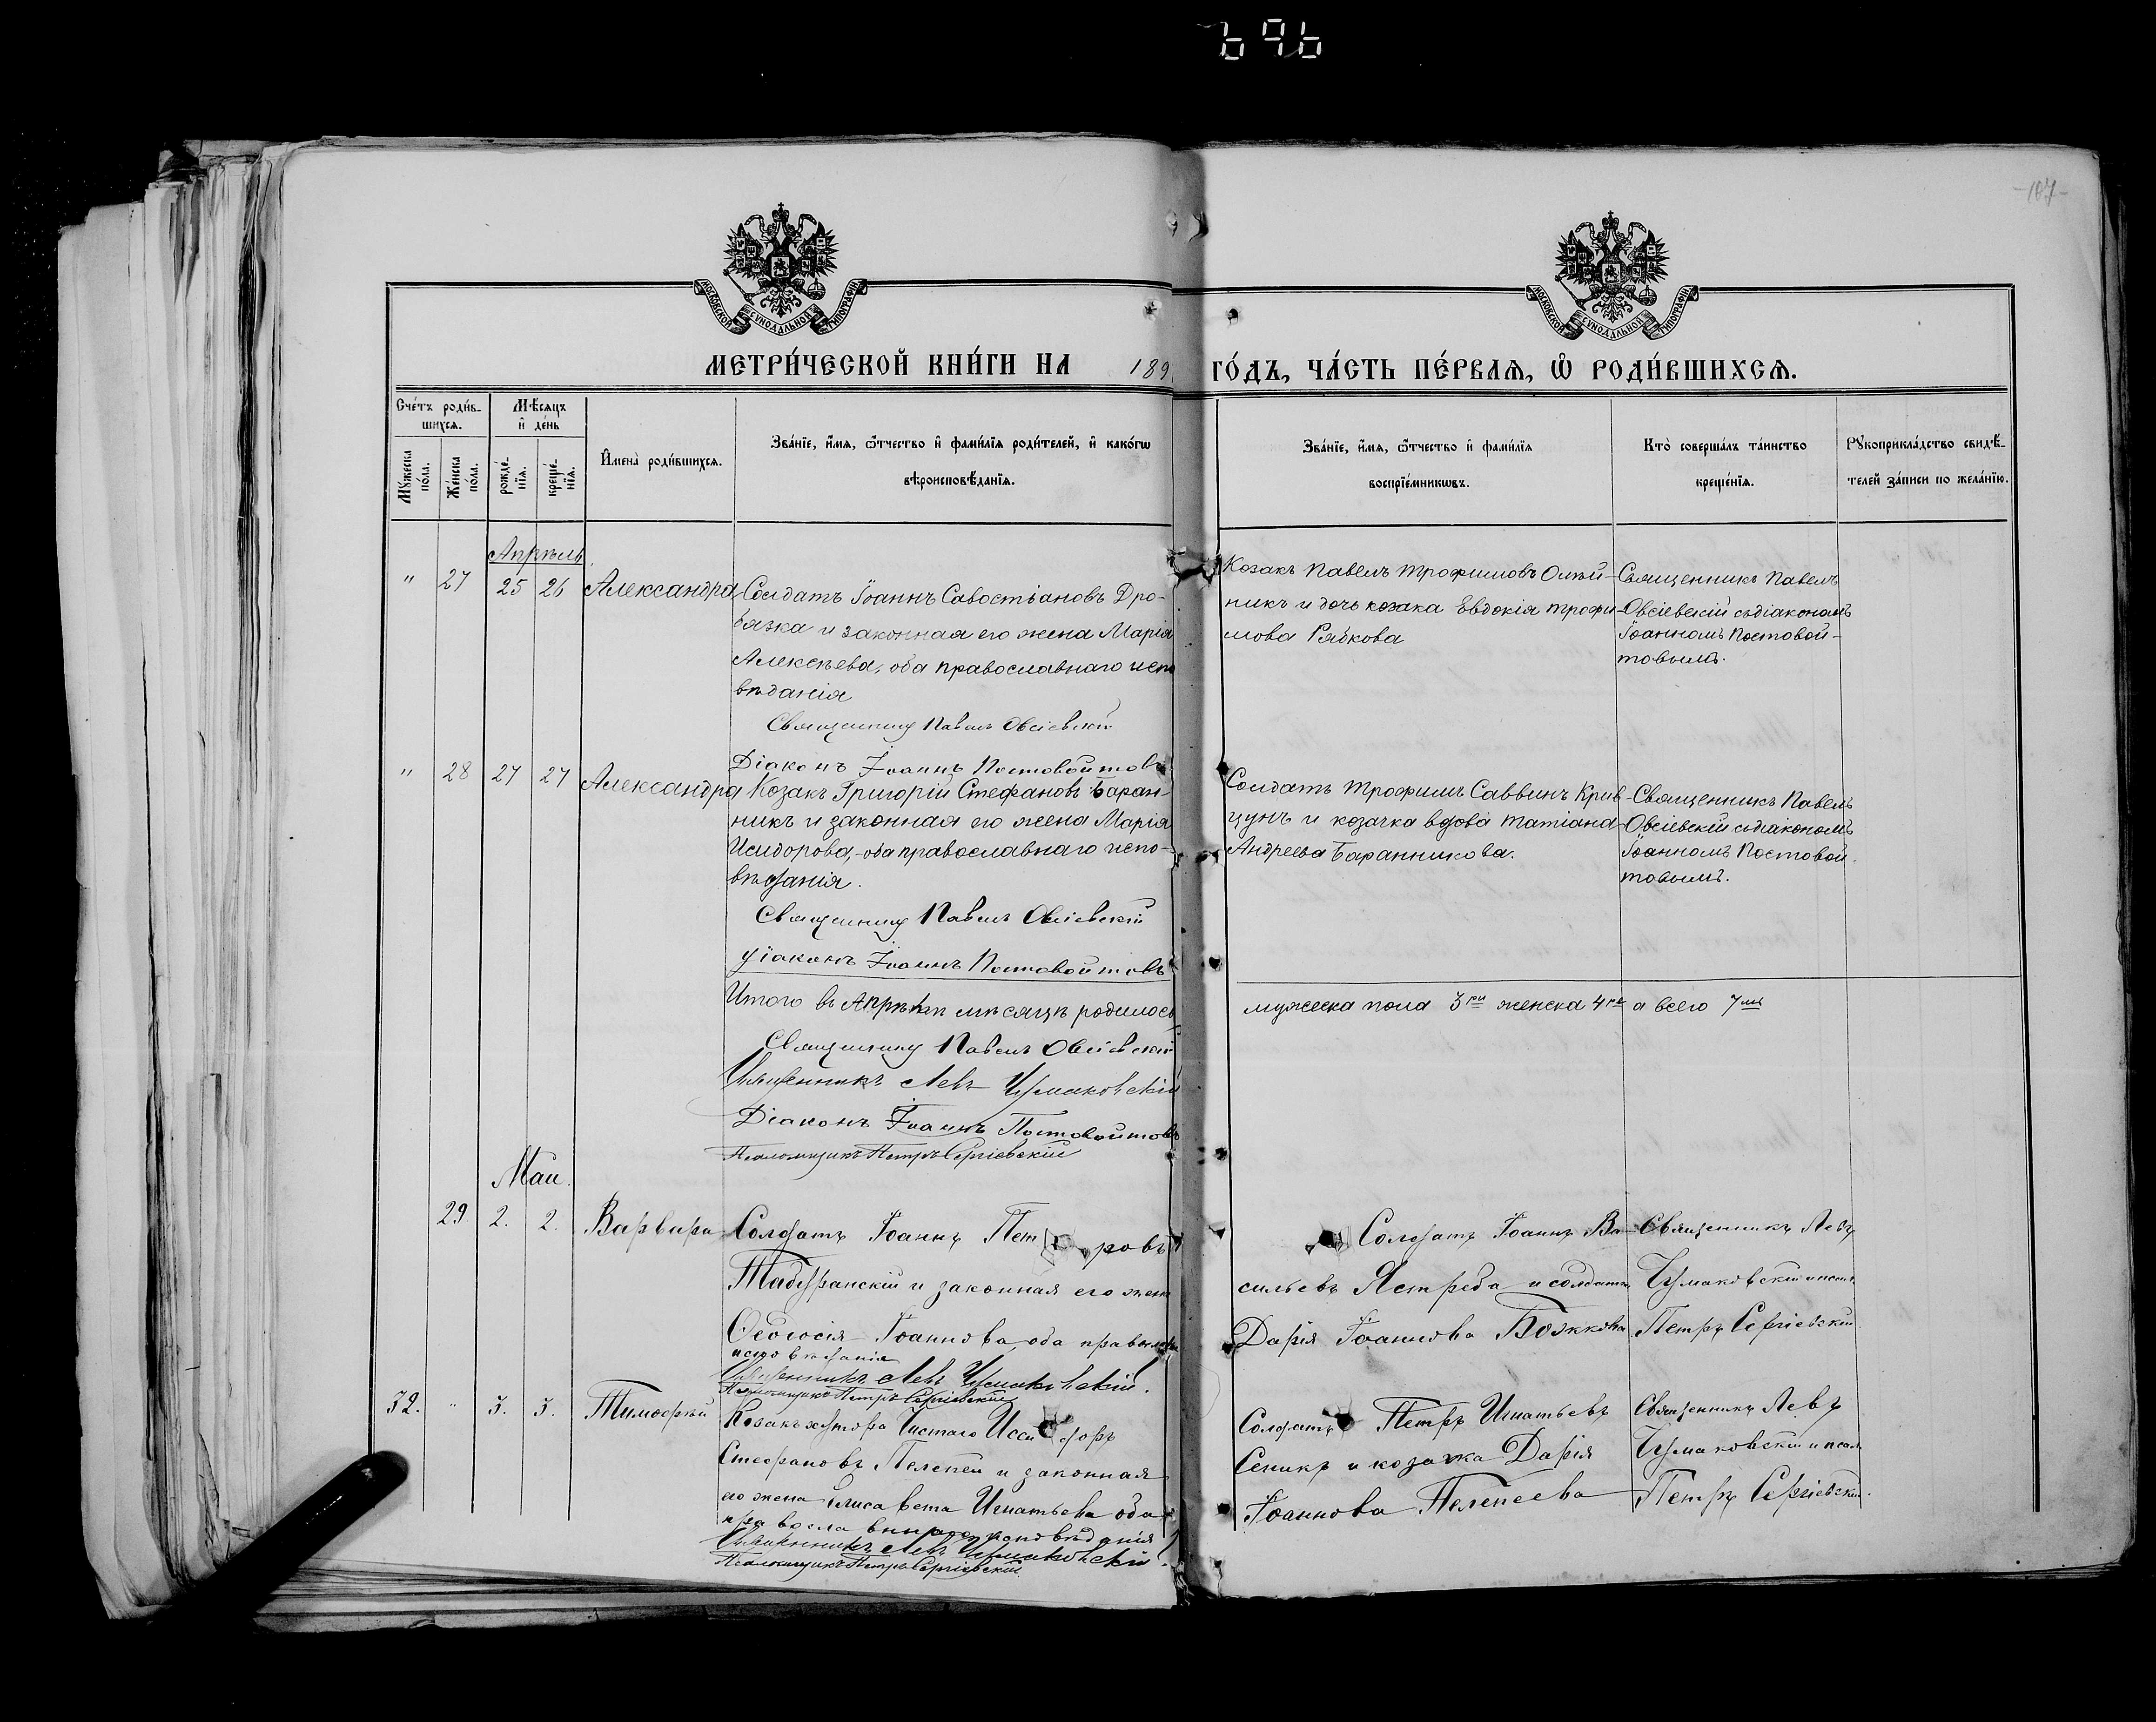 -187-
МОСКОВСКОЙ СУНОДАЛЬНОЙ ТИПОГРАФІИ
МОСКОВСКОЙ СУНОДАЛЬНОЙ ТИПОГРАФІИ
МЕТРИ́ЧЕСКОЙ КНИ́ГИ НА 189 ГО́ДЪ, ЧА́СТЬ ПЕ́РВАѦ, Ѡ РОДИ́ВШИХСѦ.
Сче́тъ роди́в-
шихсѧ.
Мꙋ́жеска по́ла.
Же́нска по́ла.
Мѣ́сѧцъ
и҆ де́нь
рожде́-
нїѧ.
креще́-
нїѧ.
И҆мена̀ роди́вшихсѧ.
Зва́нїе, и҆́мѧ, ѻ҆́тчество и҆ фами́лїѧ роди́телей, и҆ како́гѡ
вѣроисповѣ́данїѧ.
Зва́нїе, и҆́мѧ, ѻ҆́тчество и҆ фами́лїѧ
воспрїе́мникѡвъ.
Кто̀ соверша́лъ та́инство
креще́нїѧ.
Рꙋкоприкла́дство свидѣ́-
телей за́писи по жела́нїю.
Апрѣль
" 27 25 26 Александра
Солдатъ Іоаннъ Савостіановъ Дро-
бязка и законная его жена Марія
Алексѣева, оба православнаго испо
вѣданія
Священникъ Павелъ Овсіевскій
Діаконъ Іоаннъ Постовойтовъ
Козакъ Павелъ Трофимовъ Олѣй-
никъ и дочь козака Евдокія Трофи-
мова Рябкова
Священникъ Павелъ
Овсіевскій съ діакономъ
Іоанномъ Постовой-
товымъ.
" 28 27 27 Александра
Козакъ Григорій Стефановъ Баран-
никъ и законная его жена Марія
Исидорова, - оба православнаго испо-
вѣданія.
Священникъ Павелъ Овсіевскій
Діаконъ Іоаннъ Постовойтовъ
Солдатъ Трофимъ Саввинъ Крив-
цунъ и козачка вдова Татіана
Андреева Баранникова.
Священникъ Павелъ
Овсіевскій съ діакономъ
Іоанномъ Постовой-
товымъ.
Итого въ Апрѣлѣ мѣсяцѣ родилось мужеска пола 3ри женска 4ре а всего 7мь
Священникъ Павелъ Овсіевскій
Священникъ Левъ Чумаковскій
Діаконъ Іоаннъ Постовойтовъ
Псаломщикъ Петръ Сергіевскій
Маи
29. 2. 2. Варвара
Солдатъ Іоаннъ Петровъ
и законная его жена
Ѳеодосія Іоаннова оба правосл
исповѣданія
Священникъ Левъ Чумаковскій.
Псаломщикъ Петръ Сергіевскій
Солдатъ Іоаннъ Ва-
сильевъ Ястреба и солдатка
Дарія Іоаннова Божкова
Священникъ Левъ
Чумаковскій и псал
Петръ Сергіевскій
32. " 3. 3. Тимоѳей
Козакъ хутора Чистаго Иссидоръ
Стефановъ Пелепей и законная
его жена Елисавета Игнатьева оба
православнаго исповѣданія
Священникъ Левъ Чумаковскій.
Псаломщикъ Петръ Сергіевскій.
Солдатъ Петръ Игнатьевъ
Сеникъ и козачка Дарія
Іоаннова Пелепеева
Священникъ Левъ
Чумаковскій и псал
Петръ Сергіевскій.